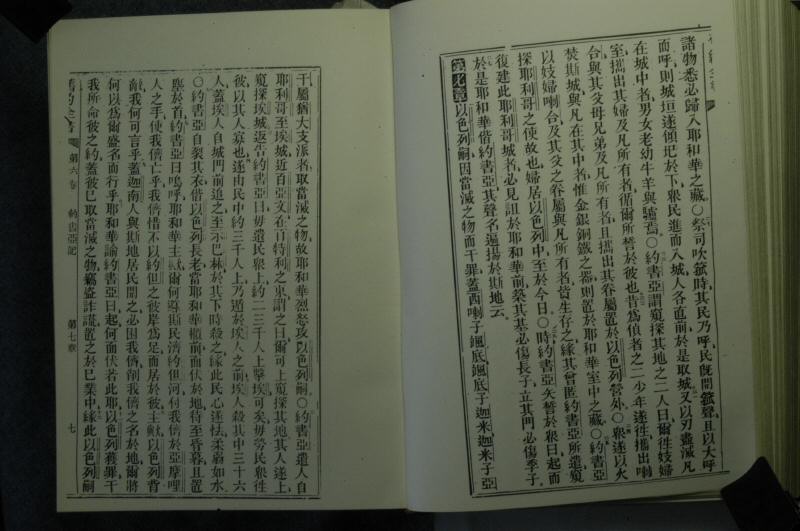 諸物悉必歸入耶和華之藏○祭司吹號時其民乃呼民旣聞號聲且以大呼
而呼則城垣遂傾圮於下衆民進而入城人各直前於是取城又以刃盡滅凡
在城中者男女老幼牛羊與驢焉○約書亞謂窺探其地之二人曰爾徃妓婦
室攜出其婦及凡所有者循爾所誓於彼也昔爲偵者之二少年遂徃攜出喇
合與其父母兄弟及凡所有者且攜出其眷屬置於以色列營外○衆遂以火
焚斯城與凡在其中者惟金銀銅鐵之器則置於耶和華室中之藏○約書亞
以妓婦喇合及其父之眷屬與凡所有者皆生存之緣其曾匿約書亞所遣窺
探耶利哥之使故也婦居以色列中至於今日○時約書亞矢誓於衆曰起而
復建此耶利哥城者必見詛於耶和華前築其基必傷長子立其門必傷季子
於是耶和華偕約書亞其聲名遍揚於斯地云
第七章以色列嗣因當滅之物而干罪蓋西喇子颯底颯底子迦米迦米子亞
干屬猶大支派者取當滅之物故耶和華烈怒攻以色列嗣○約書亞遣人自
耶利哥至埃城近百亞文在百特利之東謂之曰爾可上窺探其地其人遂上
窺探埃城返告約書亞曰毋遣民衆上約二三千人上擊埃可矣毋勞民衆徃
彼以其人寡也遂由民中約三千人上乃遁於埃人之前埃人殺其中三十六
人蓋埃人自城門前追之至示巴林於其下時殺之緣此民心遂怯柔弱如水
○約書亞自裂其衣偕以色列長老當耶和華櫃前面伏於地待至昏暮且置
塵於首約書亞曰嗚呼耶和華主歟爾何導斯民濟約但河付我儕於亞摩哩
人之手使我儕亡乎我儕惜不以約但之彼岸爲足而居於彼主歟以色列背
敵我何可言乎蓋迦南人與斯地居民聞之必圍我儕削我儕之名於地爾將
何以爲爾盛名而行乎耶和華諭約書亞曰起何面伏若此耶以色列獲罪干
我所命彼之約蓋彼已取當滅之物竊盜詐謊置之於己業中緣此以色列嗣
舊約全書
第六卷
約書亞記
第七章
七